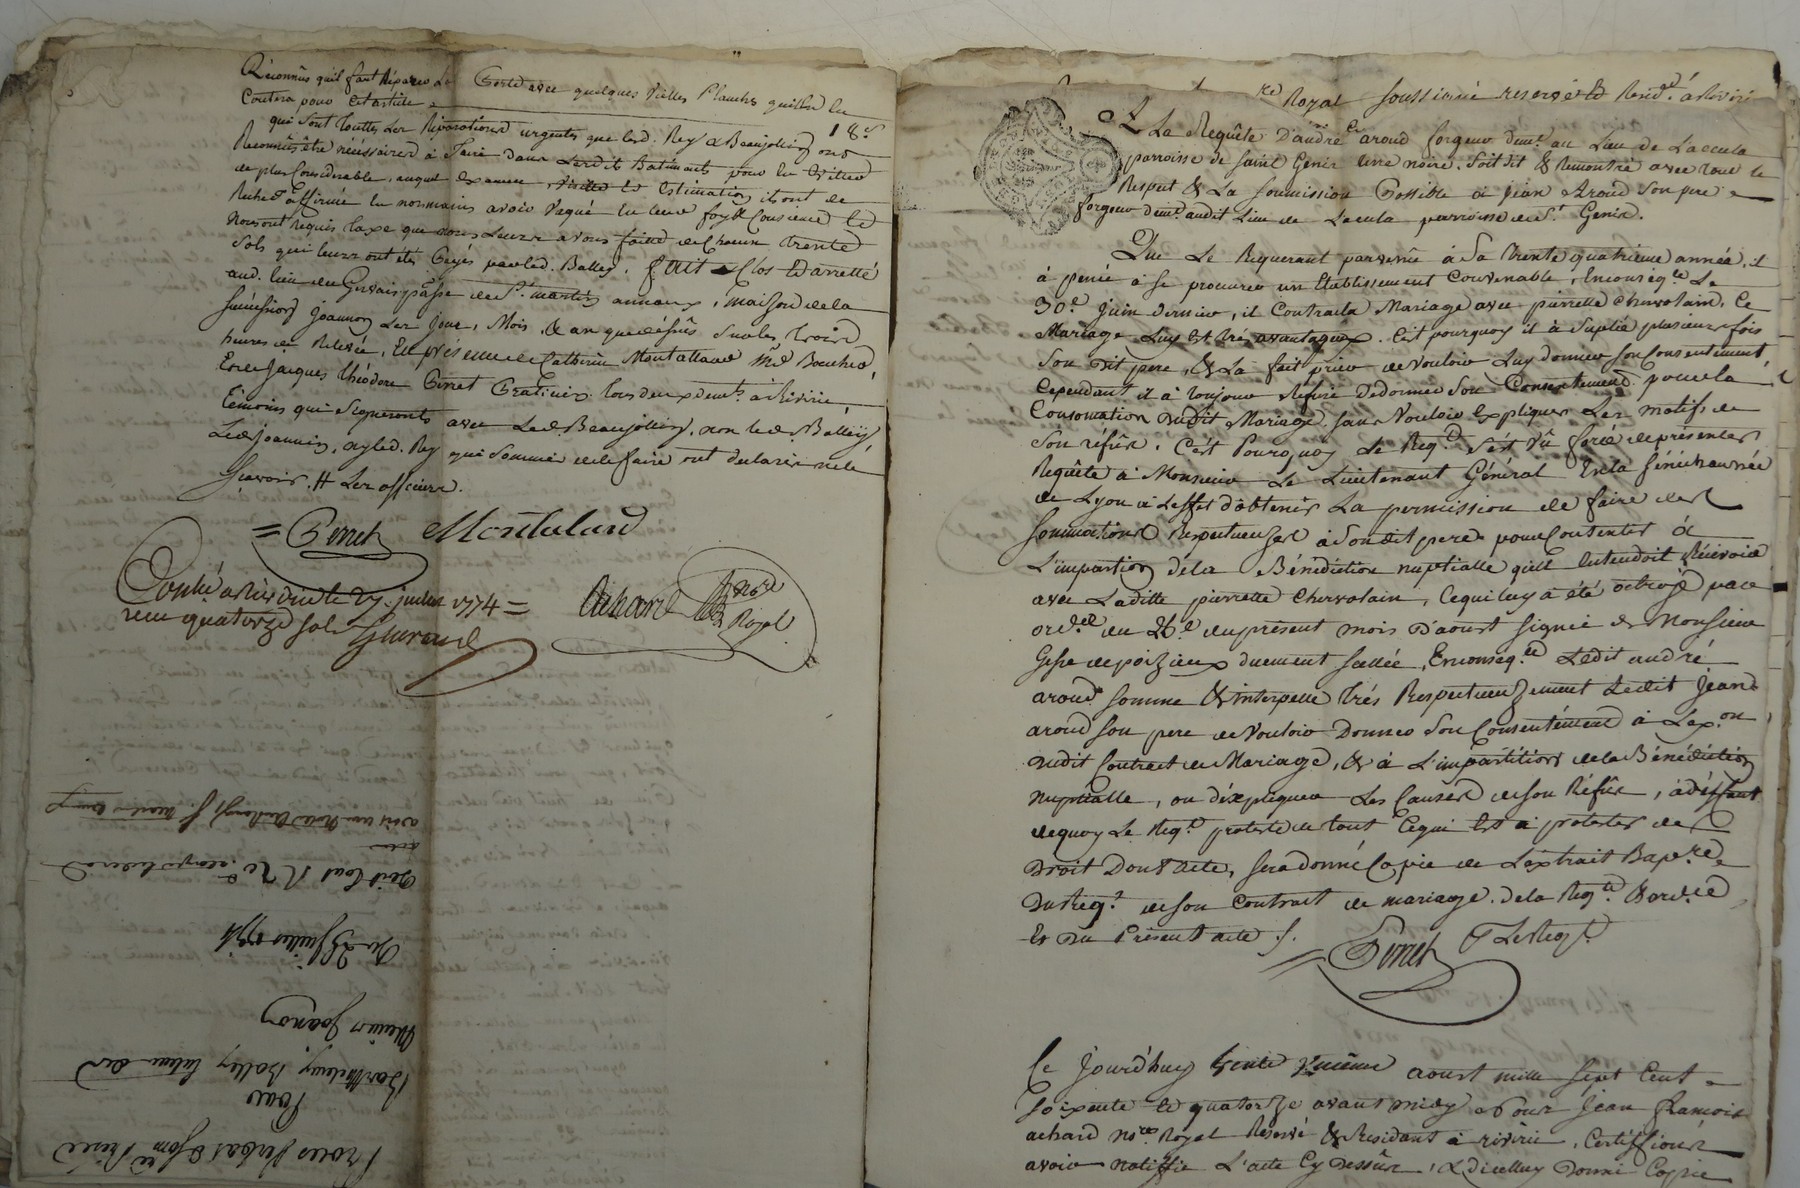 Réconnûs qu'il faut Réparer La Porte avec quelques Vielles Planches qu'elle le
Coutera pour Cet article 18 s
qui sont touttes Les Réparations urgentes que lesd. Rey & Beaujollin ont
Reconnûs être nécéssaires à Faire dans Lesdits Batiments pour En Eviter
de plus Considerable, auquel Examen, visitte Et Estimation, ils ont de
Reched affirmé En nos mains avoir Vaqué En leur foy & Conscience Et
Nous ont Requis taxe que nous Leurs avons faitte de Chacun trente
Sols qui leurs ont étés Payés par led. Balley. Fait Clos Et arretté
aud. lieu du Gervais psse de St. martin annaux, maison de la
succéssion Joannon Les Jour, Mois, & an que déssûs sur les trois
heures de Relevée, En présence de Catherin Montalland Md Boucher,
Et de Jacques théodore Perret Praticien tous deux demts. à Riverie,
témoins qui signeront avec Led. Beaujollin, non led. Balley,
Led. Joannin, ny led. Rey qui sommé de le faire ont déclarés ne le
sçavoir. # Les officiers.
= Perret Montaland
Achard Nre Royal
Contlé à Riverie le 27 juillet 1774 =
reçu quatorze sols Guiraud
Procés Verbal & Som Prisée
Pour
Barthelemy Balley tuteur des
Mineurs Joanon
Du 26 juillet 1774
re Royal soussigné reservé Et Resid.t à Riverie
A La Requête D'andré aroud forgeur demt. au Lieu de Lacula
parroisse de Saint Genis terre noire. Soit dit & Remontré avec tout Le
Respect & La soumission Possible à jean Aroud Son pere
forgeur demt. audit Lieu de Lacula parroisse de St. Genis.
Que Le Requerant parvenû à Sa trente quatrieme année, il
à pensé à se procurer un Etablissement Convenable, En conséq.ce Le
30e Juin dernier, il Contracta Mariage avec pierrette Chervolain, Ce
Mariage Luy Est trés avantageux. C'est pourquoy il à Suplié plusieurs fois
Son dit pere, & La fait prier de Vouloir Luy donner Son Consentement,
Cependant il à toujours Refusé De donner Son Consentement pour La
Consomation dudit Mariage, sans Vouloir Expliquer Les motifs de
Son réfûs. C'est Pourquoy Le Reqt. s'est Vû forcé de présenter
Requête à Monsieur Le Lieutenant Général En la Sénéchaussée
de Lyon à L'effet d'obtenir La permission de faire des
Sommations Respectueuses à Son dit pere pour Consentir à
L'impartion de la Bénédiction nuptialle qu'il Entendoit Récévoir
avec Laditte pierrette Chervolain, Ce qui luy à été octroyé par
ordce. du 26e du présent mois D'aoust signée de Monsieur
Gesse de poizieux duement scellée, En conséq.ce Ledit andré
aroud somme & interpelle trés Respectueuzement Ledit Jean
aroud son pere de Vouloir Donner Son Consentément à L'ex.on
dudit Contract de Mariage, & à L'impartition de la Bénédiction
Nuptialle, ou d'éxpliquer Les Causes de son Réfûs, à déffaut
de quoy Le Reqt. proteste de tout Ce qui Est à protester de
Droit Dont acte, sera donné Copie de L'extrait Bapre.
Du Reqt. de son Contract de mariage. de la Reqte. & ordce
Et Du Présent acte /.
= Perret P Le Reqt.
Ce Jourd'huy trente unieme aoust mille sept Cent
soixente Et quatorze avant midy Nous Jean François
achard nre Royal Reservé & Residant à riverie, Certiffions
avoir notiffié L'acte Cy Dessûs, & dicelluy Donné Copie